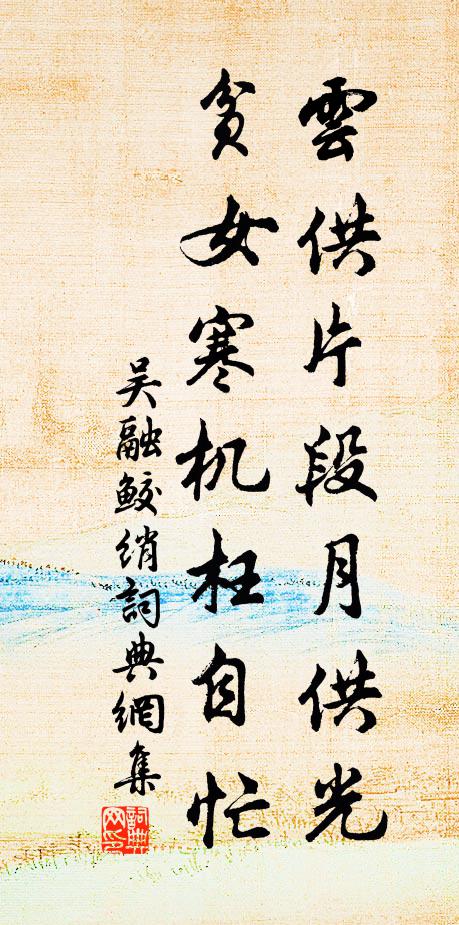 雲供片段月供光
貧女寒机枉自忙
吴融鲛绡詞典網集
詞典网印